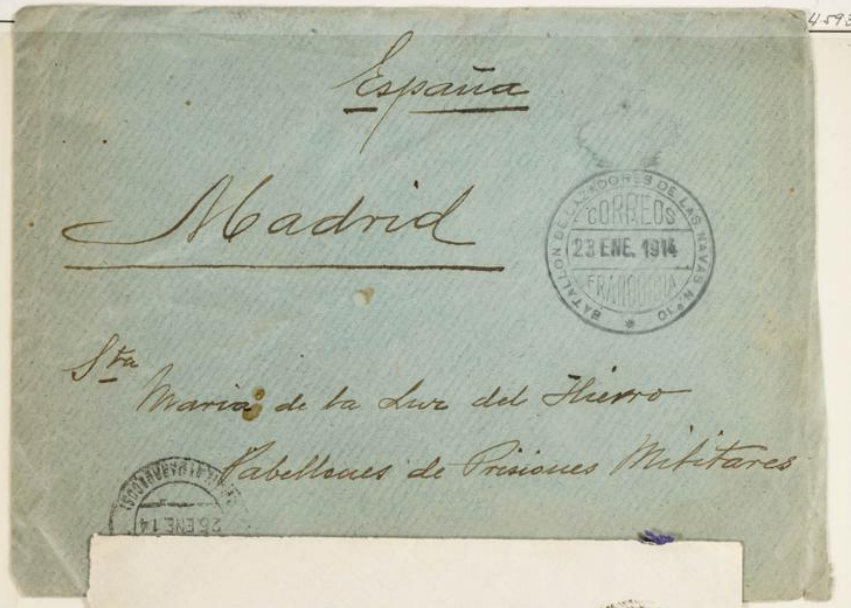 4593
España
Madrid
BATALLON DE CAZADORES DE LAS NAVAS N.º 10
CORREOS
23 ENE. 1914
FRANQUICIA
Sta
Maria de la Luz del Hierro
Pabellones de Prisiones Militares
26 ENE 14